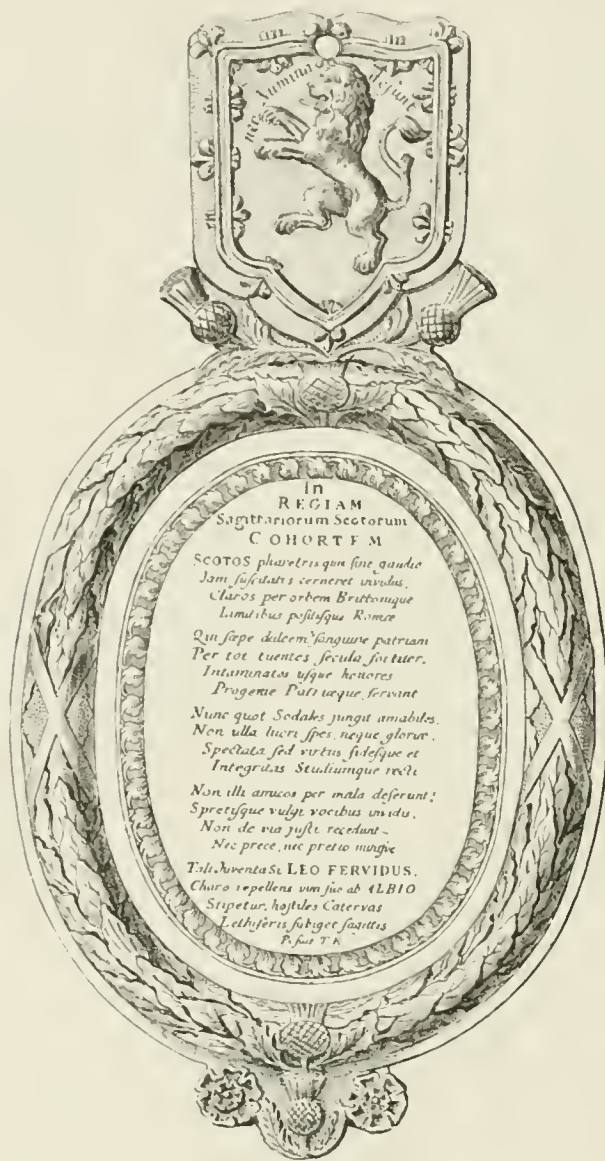 nec Numina deſunt
In
REGIAM
Sagittariorum Scotorum
COHORTEM
SCOTOS pharetris quis ſine gaudio
Jam ſuſcitatis cerneret invidus,
Claros per orbem
Limitibus poſitiſque Romæ
Qui ſæpe dulcem ſanguine patriam
Per tot tuentes ſecula fortiter,
Intaminatos uſque honores
Progenie ſervant
Nunc quot Sodales jungit amabiles,
Non ulla lucri ſpes, neque gloriæ,
Spectata ſed virtus fideſque et
Integritas Studiumque recti
Non illi amicos per mala deſerunt;
Spretiſque vulgi vocibus invidi,
Non de via juſti recedunt
Nec prece, nec pretio
Tali Juventa Si LEO FERVIDUS,
Charo repellens vim ſuo ab ALBIO
Stipetur, hoſtiles Catervas
Lethiferis ſubiget ſagittis